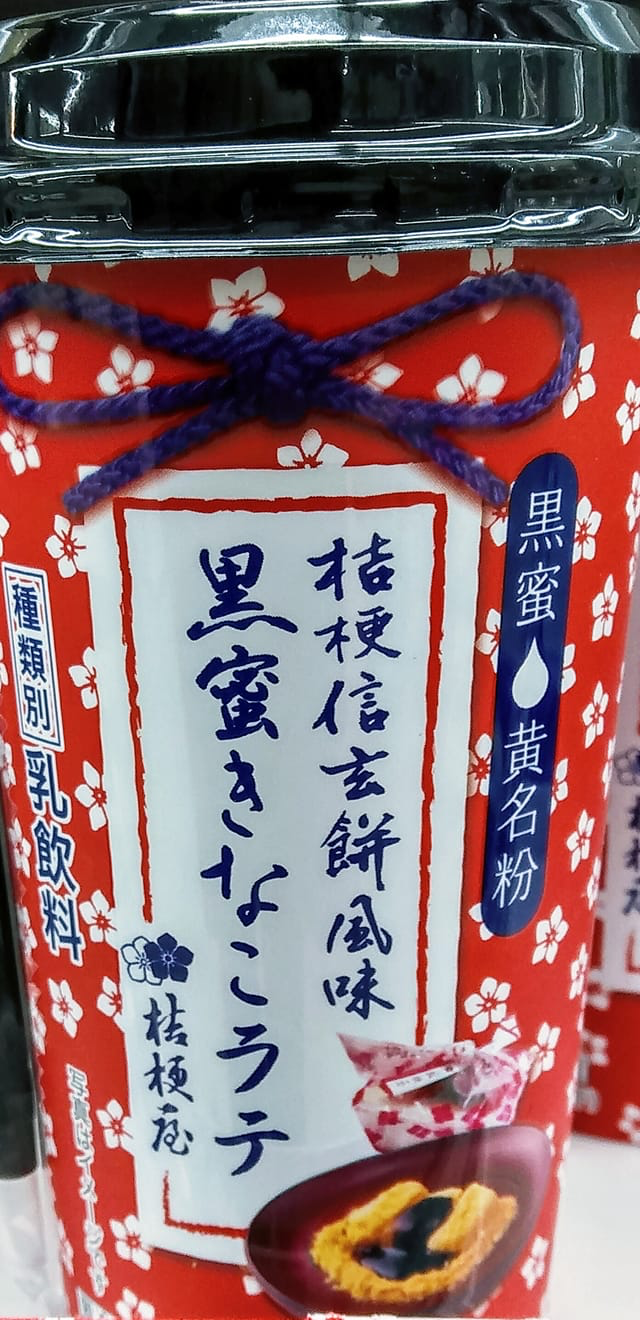 黒蜜 黄名粉
桔梗信玄餅風味
黒蜜きなこラテ
桔梗屋
種類別 乳飲料
写真はイメージです